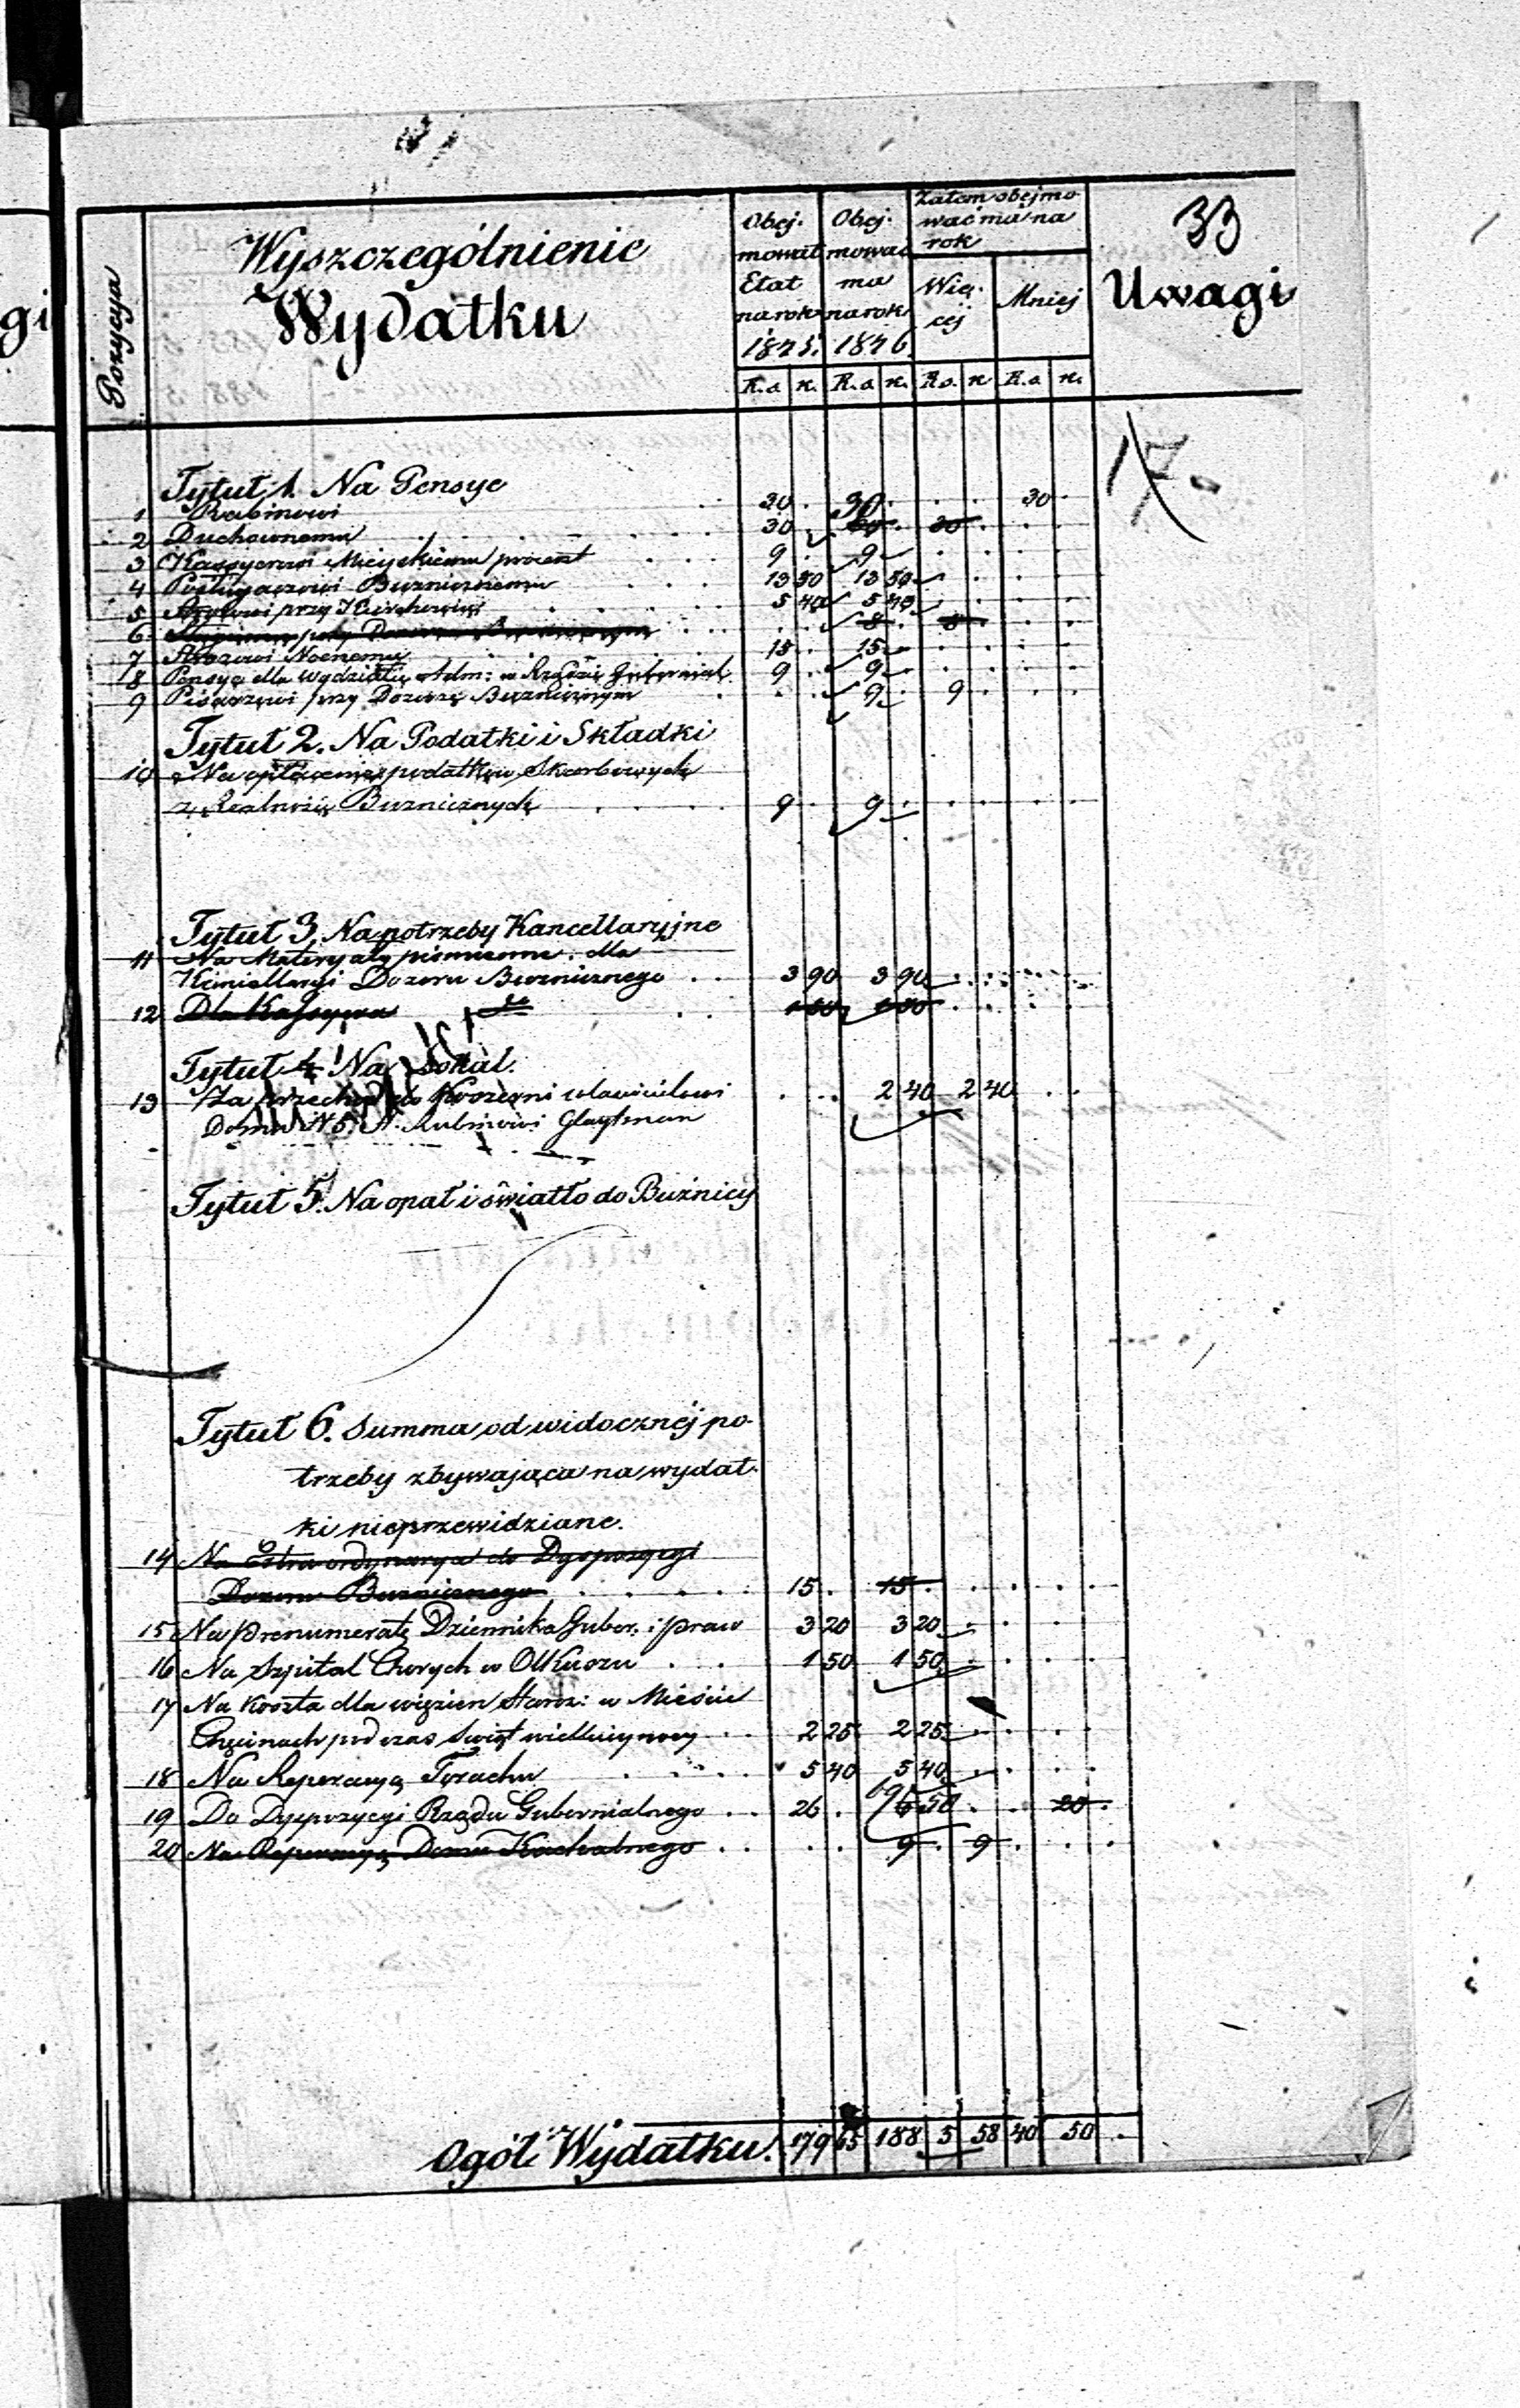 33
Pozycya
Wyszczególnienie
Wydatku
Obej-
mował
Etat
na rok
1845.
Obej-
mować
ma
na rok
1846.
Zatem obejmo-
wać ma na
rok
Wię-
cej
Mniej
Uwagi
R.s. k. R.s. k. R.s. k. R.s. k.
17
Tytuł 1. Na Pensye
1 Rabinowi 30 . . . . . 30 .
2 Duchownemu 30 . 30 . 30 . . .
3 Kassyerowi Mieyskiemu procent 9 . 9 . . . .
4 Posługaczowi Bużnicznemu 13 50 13 50 . . . .
5 przy 5 40 5 40 . . . .
6 przy Dozorze . . 8 . 8 . . .
7 Stróżowi Nocnemu 15 . 15 . . . .
8 Pensya dla Wydziału Adm: w Rządzie Gubernial: 9 . 9 . . . .
9 Pisarzowi przy Dozorze Bużnicznym . . 9 . 9 . .
Tytuł 2. Na Podatki i Składki
10 Na opłacenie podatków Skarbowych
z Realności Bużnicznych 9 . 9 . . . . .
Tytuł 3. Na potrzeby Kancellaryjne
11 Na Materyały piśmienne dla
Kancellaryi Dozoru Bużnicznego . . 3 90 3 90 . . . .
12 Dla Kassyera
Tytuł 4. Na Lokal.
13 Za przechod do Koszerni własicielowi
Domu N 5. Rubinowi Glaytman . . . 2 40 2 40 . .
Tytuł 5. Na opał i światło do Bużnicy
Tytuł 6. Summa od widocznéj po-
trzeby zbywająca na wydat-
ki nieprzewidziane.
14 Na Extraordynarya do Dyspozycyi
Dozoru Bużnicznego . . . . 15 . 15 . . . . .
15 Na prenumeratę Dziennika Guber. i praw 3 20 3 20 . . . .
16 Na Szpital Chorych w Olkuszu . . 1 50 1 50 . . . .
17 Na koszta dla więzien Staroz: w Mieście
Chęcinach podczas Świąt wielkiejnocy . . 2 25 2 25 . . . .
18 Na Reperacyą Torachu . . . . 5 40 5 40 . . . .
19 Do Dyspozycyi Rządu Gubernialnego . . 26 . 6 50 . . 20 .
20 Na Reperacyą Domu Kachalnego . . . . 9 . 9 . . .
Ogół Wydatku. 179 65 188 5 58 40 50 .